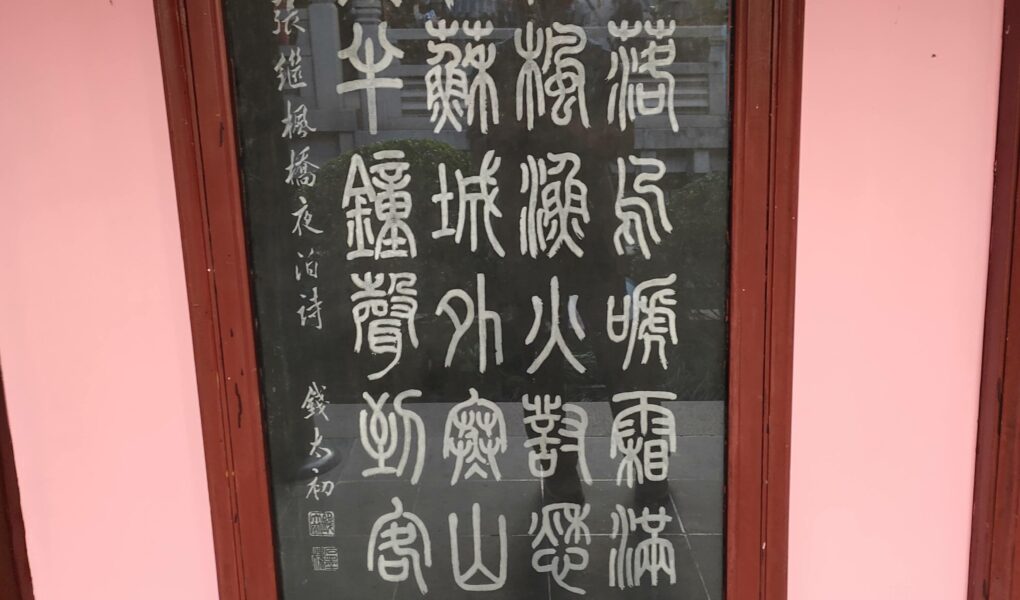 落烏嗁霜滿
楓漁火對愁
蘇城外寒山
半鐘聲到客
張繼楓橋夜泊詩 錢太初